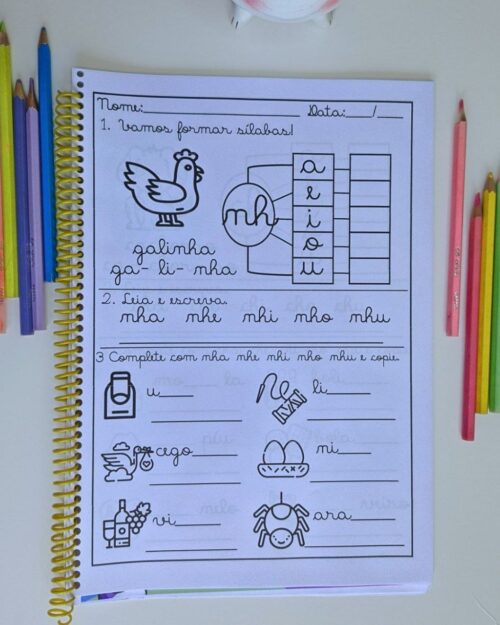 Nome:____________________ Data:___/___
1. Vamos formar sílabas!
nh
a
e
i
o
u
galinha
ga- li- nha
2. Leia e escreva.
nha nhe nhi nho nhu
3 Complete com nha nhe nhi nho nhu e copie.
u____ li____
cego____ ni____
vi____ ara____